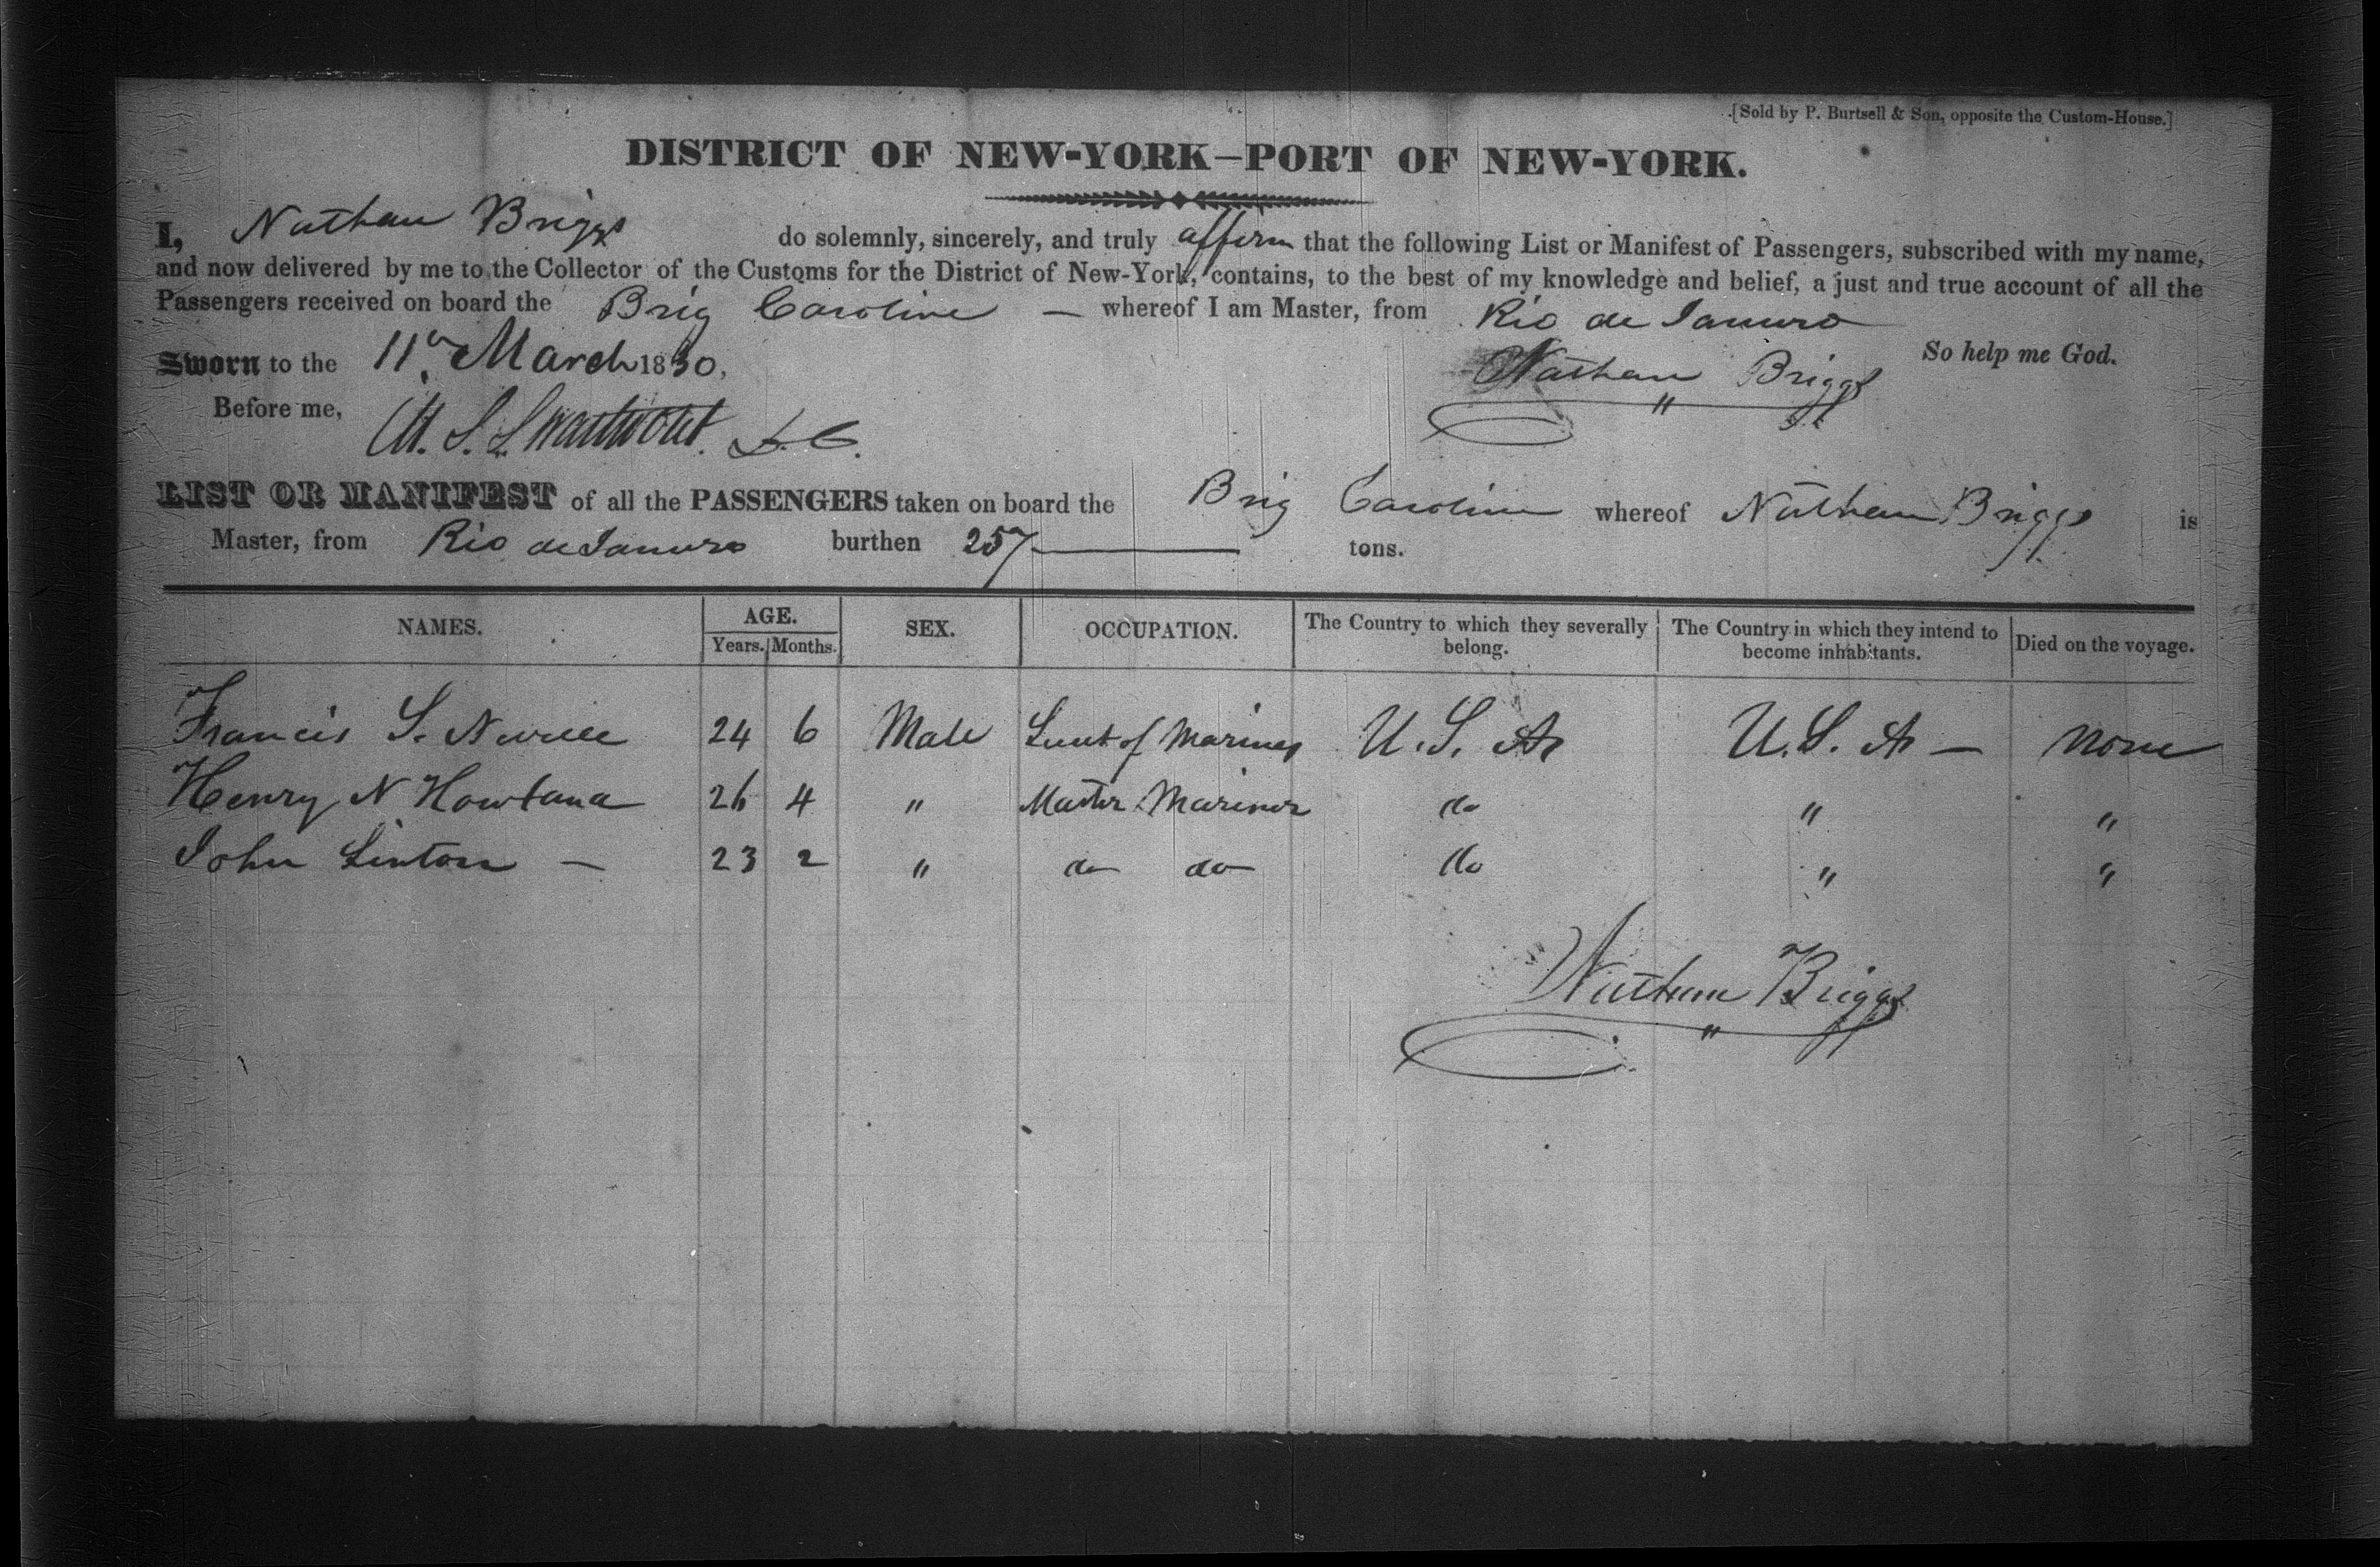 [Sold by P. Burtsell & Son, opposite the Custom-House.]
DISTRICT OF NEW-YORK—PORT OF NEW-YORK.
I, Nathan Briggs do solemnly, sincerely, and truly affirm that the following List or Manifest of Passengers, subscribed with my name,
and now delivered by me to the Collector of the Customs for the District of New-York, contains, to the best of my knowledge and belief, a just and true account of all the
Passengers received on board the Brig Caroline — whereof I am Master, from Rio de Janeiro
So help me God.
Sworn to the 11th March 1830,
Nathan Briggs
Before me,
M. S. Swartwout. D. C.
LIST OR MANIFEST of all the PASSENGERS taken on board the Brig Caroline whereof Nathan Briggs is
Master, from Rio de Janeiro burthen 257 tons.
NAMES. AGE. SEX. OCCUPATION. The Country to which they severally belong. The Country in which they intend to become inhabitants. Died on the voyage.
Years. Months.
Francis S. 24 6 Male Lieut of Marines U. S. A U. S. A — none
Henry N 26 4 " Master Mariner do " "
John Linton — 23 2 " do do do " "
Nathan Briggs